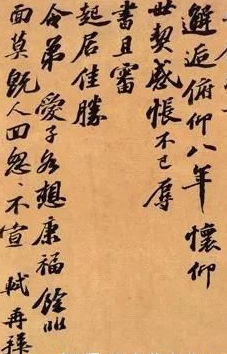 邂逅俯仰八年懷仰
世契感悵不已辱
書且審
起居佳勝
令弟愛子各想康福餘非
面莫既人回怱〻不宣 軾再拜